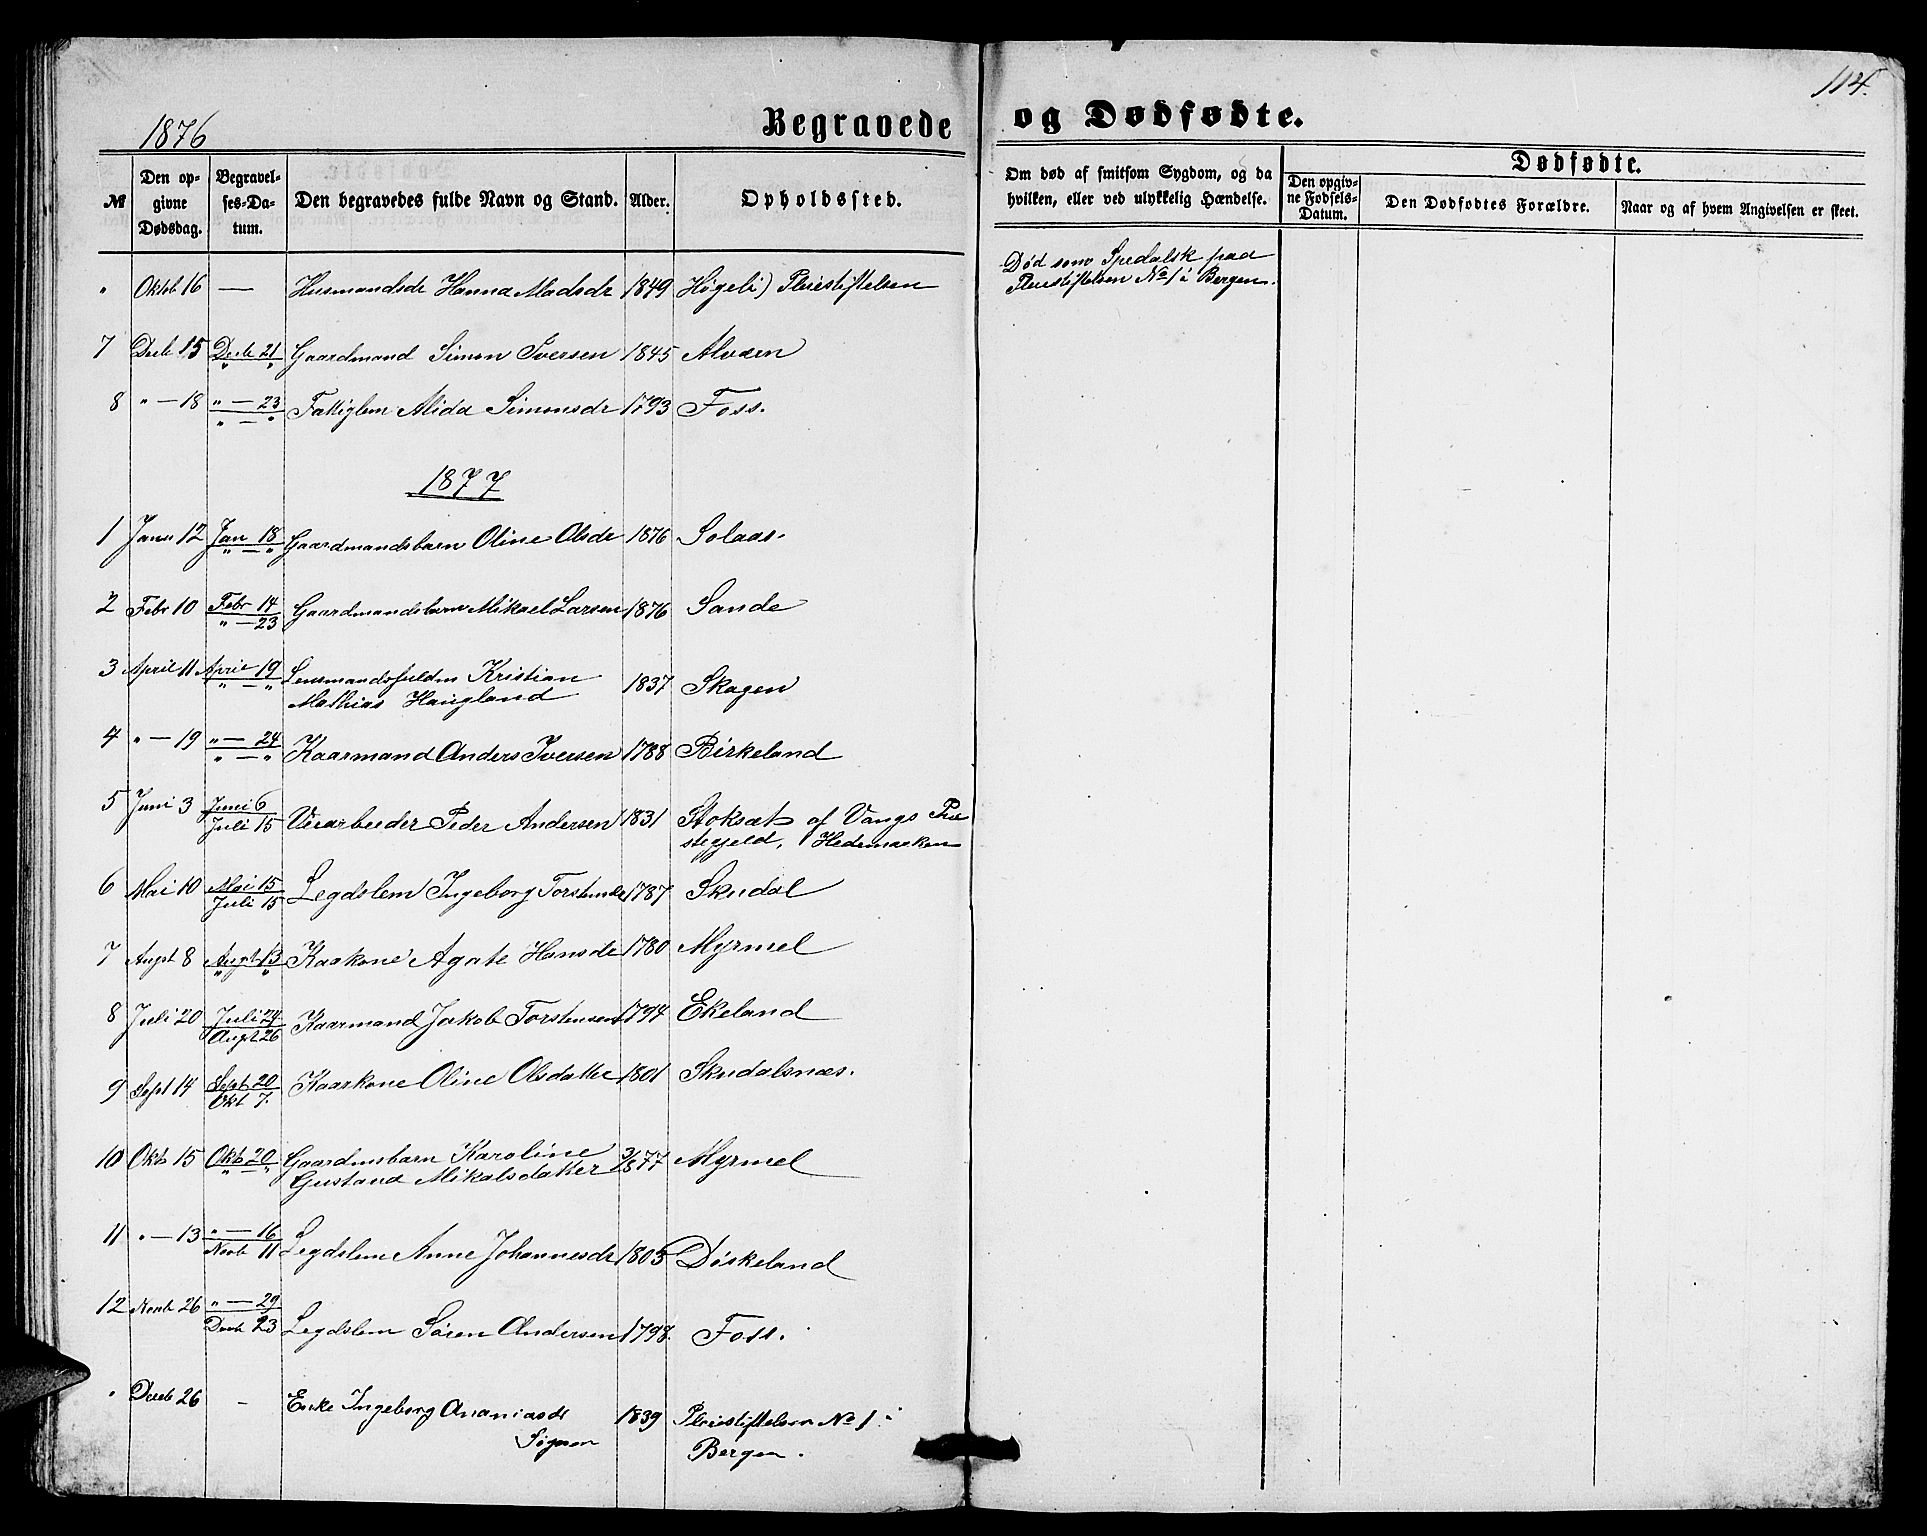 114.
1876
Begravede og Dødfødte.
№
Den opgivne Dødsdag.
Begravelses-Datum.
Den begravedes fulde Navn og Stand.
Alder.
Opholdssted.
Om død af smitsom Sygdom, og da hvilken, eller ved ulykkelig Hændelse.
Dødfødte.
Den opgivne Fødsels-Datum.
Den Dødfødtes Forældre.
Naar og af hvem Angivelsen er skeet.
" Oktob 16 — Husmandsdr Hanna Madsdr 1849 Høgeli) Pleiestiftelsen
Død som Spedalsk paa
Pleiestiftelsen No 1 i Bergen.
7 Decb 15 Decb 21 " " Gaardmand Simon Iversen 1845 Alværen
8 " — 18 " — 23 " — " Fattiglem Alida Simonsdr 1793 Foss.
1877
1 Janu 12 Jan 18 " — " Gaardmandsbarn Oline Olsdr 1876 Solaas.
2 Febr 10 Febr 14 " — 23 Gaardmandsbarn Mikael Larsen 1876 Sande
3 April 11 April 19 " — " Lensmandsfuldm Kristian
Mathias Haugland 1837 Skagen
4 " — 19 " — 24 " — " Kaarmand Anders Iversen 1788 Birkeland
5 Juni 3 Juni 6 Juli 15 Veiarbeider Peder Andersen 1831 Stoksæt af Vangs Præ
stegjeld, Hedemarken
6 Mai 10 Mai 15 Juli 15 Legdslem Ingeborg Torstensdr 1787 Skudal
7 Augst 8 Augst 13 " " Kaarkone Agate Hansdr 1780 Myrmel
8 Juli 20 Juli 24 Augst 26 Kaarmand Jakob Torstensen 1794 Ekeland
9 Sept 14 Sept 20 Okt 7. Kaarkone Oline Olsdatter 1801 Skudalsnæs.
10 Oktb 15 Oktb 20 " — " Gaardmsbarn Karoline
Gustava Mikalsdatter 1877 Myrmel
11 " — 13 " — 16 Novb 11 Legdslem Anne Johannesdr 1805 Døskeland
12 Novb 26 " — 29 Decb 23 Legdslem Søren Andersen 1798. Foss.
" Decb 26 — Enke Ingeborg Ananiasdr
Sognen 1839 Pleiestiftelsen No 1 i
Bergen.